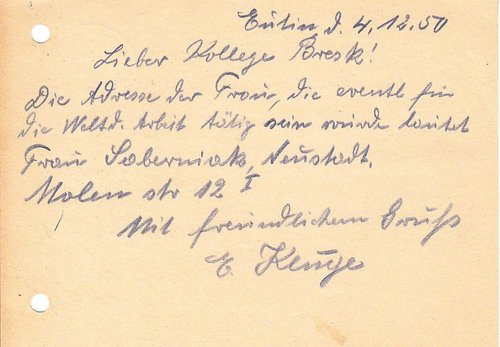 Eutin, d. 4.12.50
Lieber Kollege Bresk!
Die Adresse der Frau, die eventl für
die Weltd. Arbeit tätig sein würde lautet
Frau Saberniak, Neustadt.
Molen str 12 I
Mit freundlichem Gruß
E. Kluge